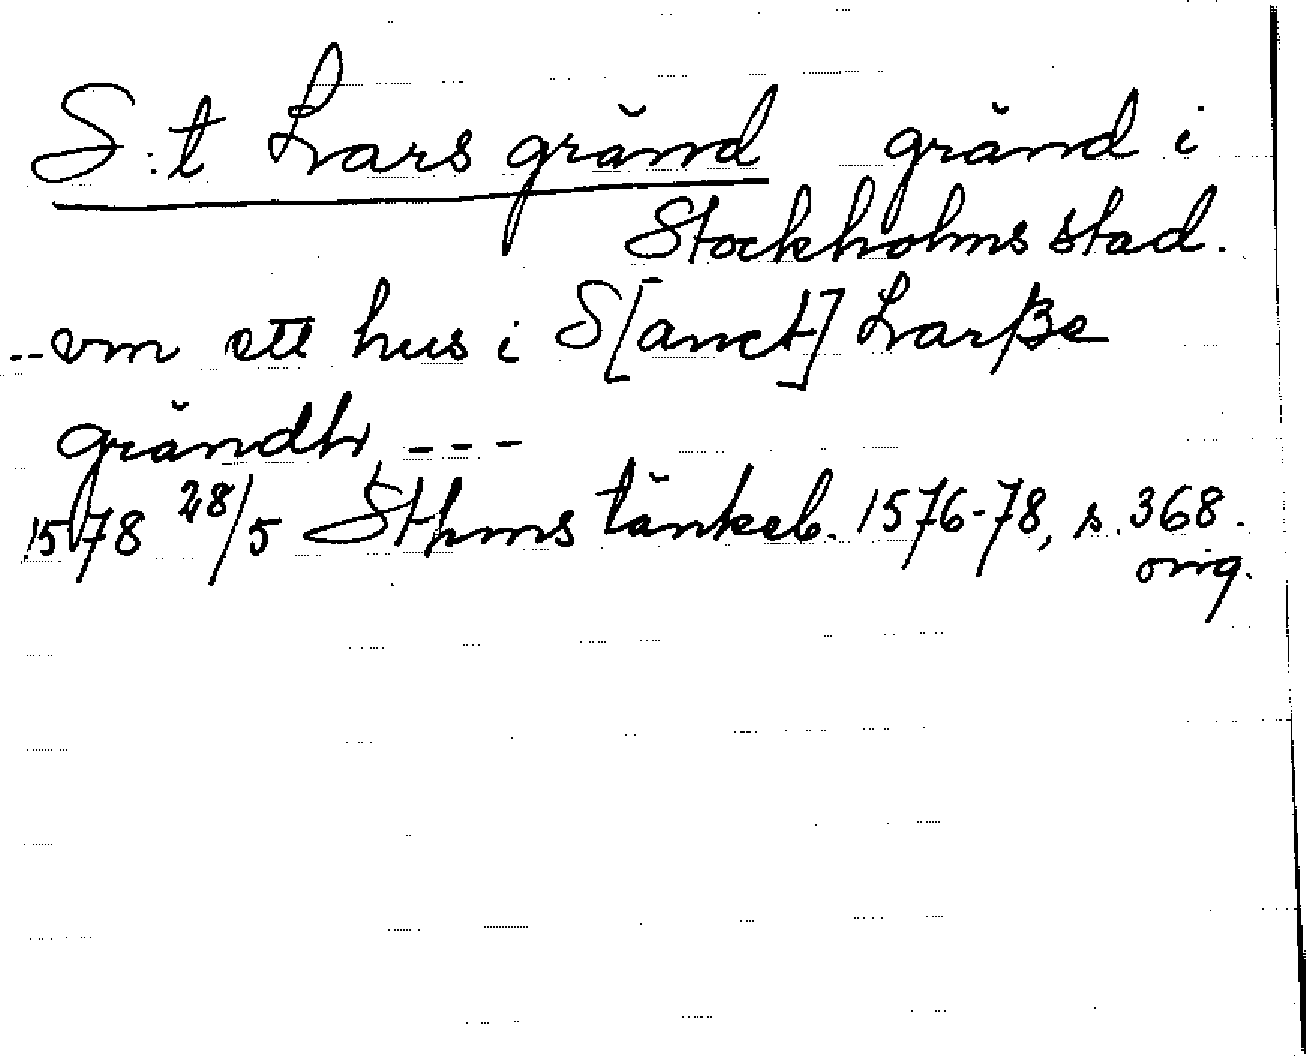 S:t Lars gränd gränd i
Stockholms stad.
--vm ett hus i S[anct] Larße
grändh, ---
1578 28/5 Sthms tänkeb. 1576-78, s. 368.
orig.